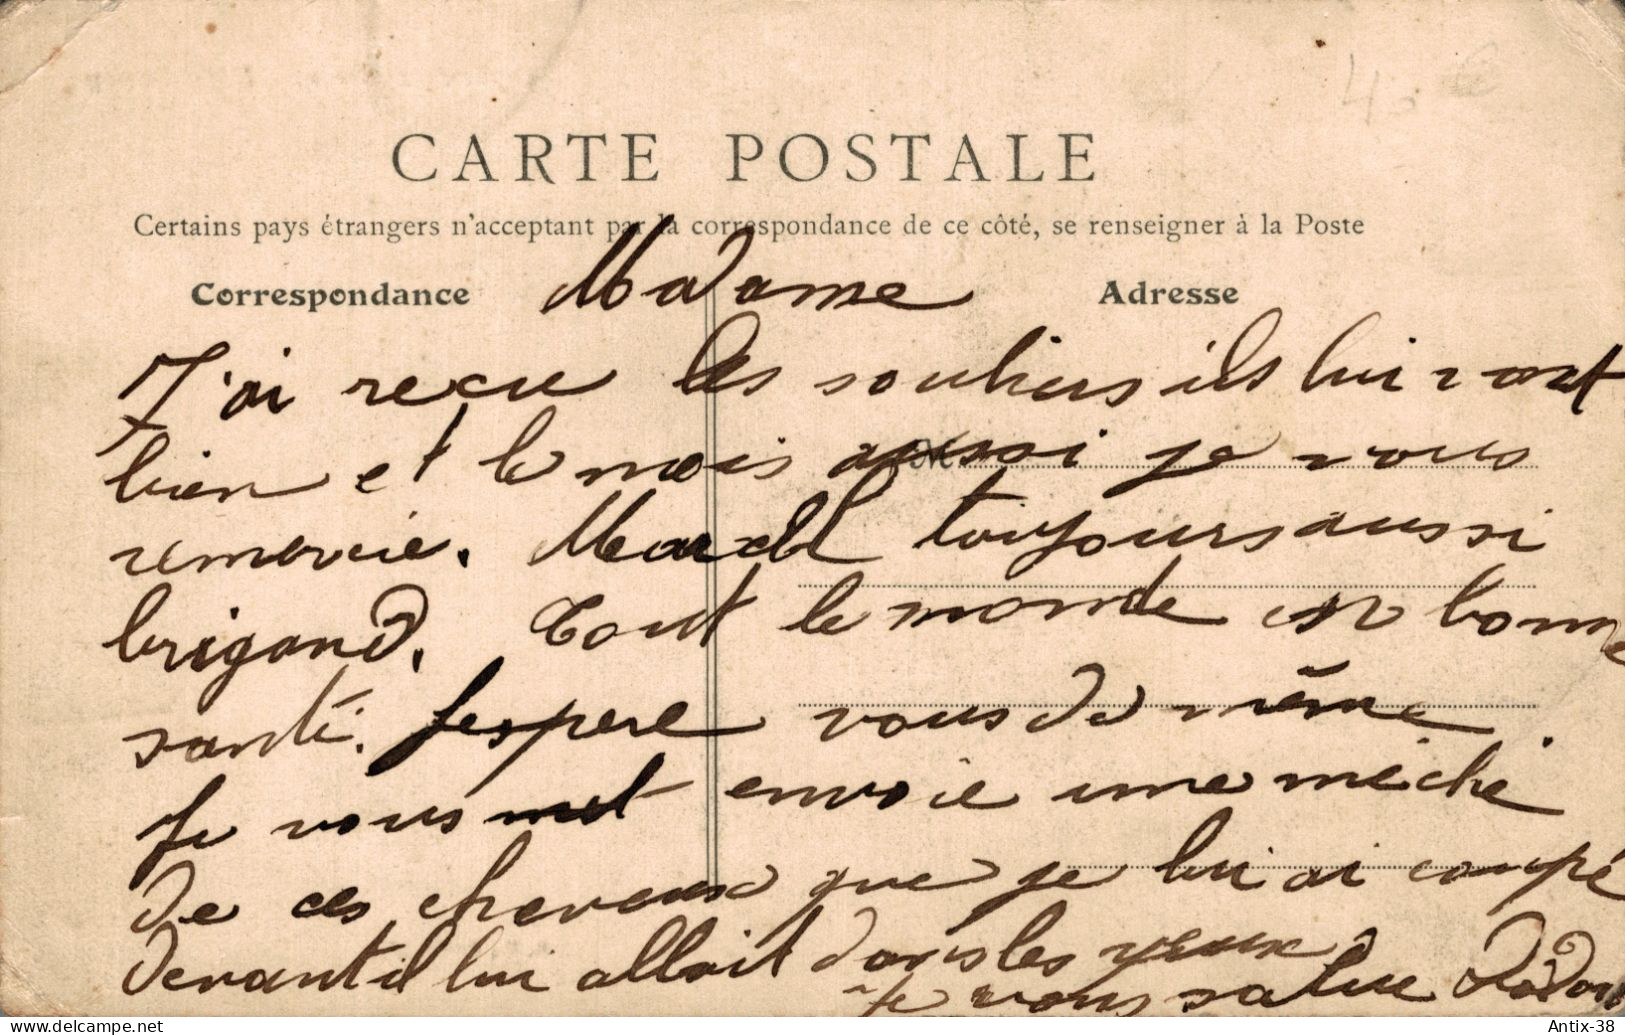 CARTE POSTALE
Certains pays étrangers n'acceptant par la correspondance de ce côté, se renseigner à la Poste
Correspondance Madame Adresse
J'ai recue les souliers ils lui vont
bien et le mois aussi je vous
remercie. Marcel toujours aussi
brigand. Tout le monde en bonne
santé. J'espere vous de même
Je vous met envoie une méche
de ces cheveux que je lui ai coupé
devant il lui allait dans les yeux
Je vous salue
Antix-38